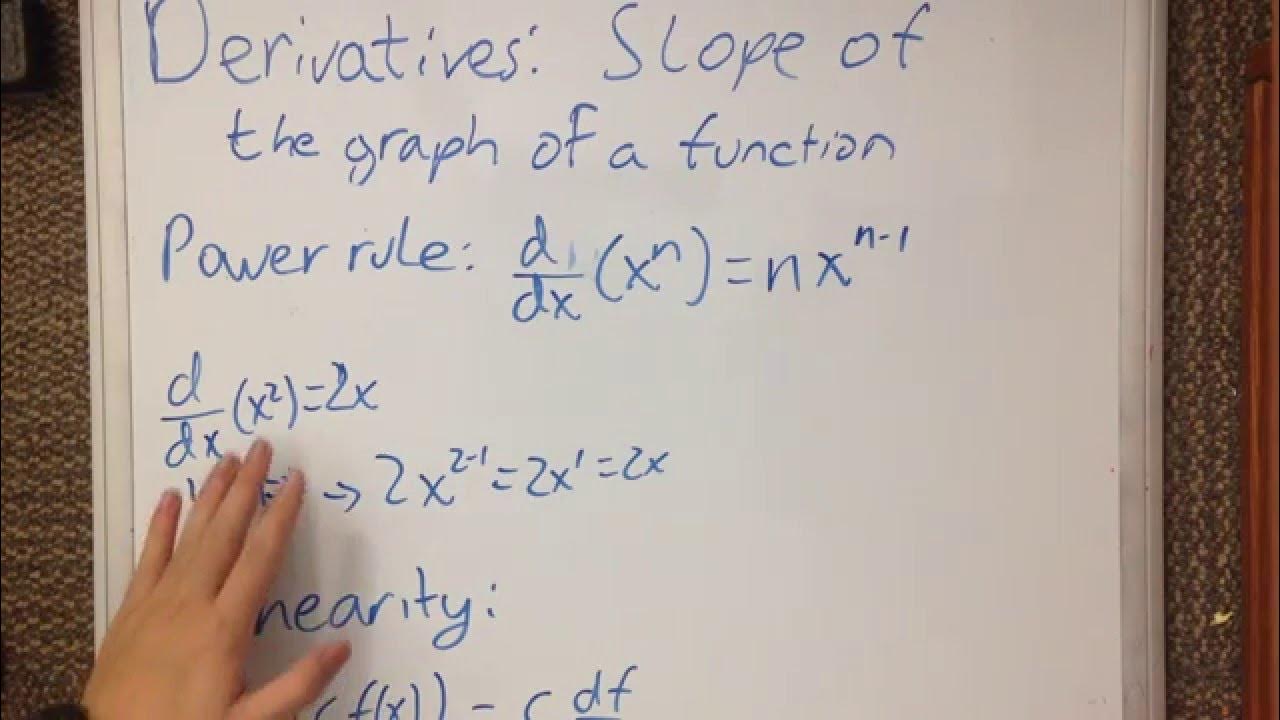 Derivatives: Slope of
the graph of a function
Power rule: d/dx (xⁿ) = nxⁿ⁻¹
d/dx (x²) = 2x
→ 2x²⁻¹ = 2x¹ = 2x
nearity:
f(x)) = c df